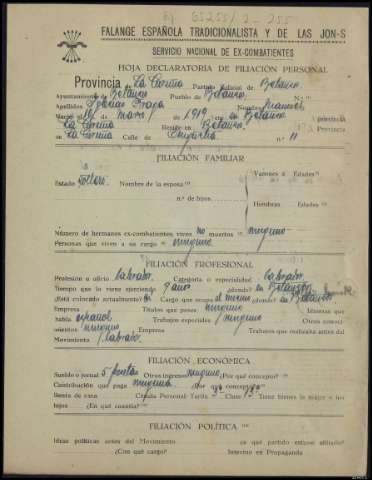 65255/2-255
FALANGE ESPAÑOLA TRADICIONALISTA Y DE LAS JON-S
SERVICIO NACIONAL DE EX-COMBATIENTES
HOJA DECLARATORIA DE FILIACIÓN PERSONAL
Provincia de La Coruña Partido Judicial de Betanzos
Ayuntamiento de Betanzos Pueblo de Betanzos
Apellidos Iglesias Fraga Nombre Manuel
Nació el de Marzo 1919 en Betanzos provincia
La Coruña Reside en Betanzos Provincia
La Coruña Calle de n.º 11
FILIACIÓN FAMILIAR
Varones Edades
Estado soltero Nombres de la esposa
n.º de hijos
Hembras Edades
Número de hermanos ex-combatientes vivos no muertos ninguno
Personas que viven a su cargo ninguno
FILIACIÓN PROFESIONAL
Profesión u oficio labrador Categoría o especialidad labrador
Tiempo que lo viene ejerciendo 9 años ¿dónde? en Betanzos
¿Está colocado actualmente? Cargo que ocupa el mismo ¿dónde? en Betanzos
Empresa Títulos que posee ninguno Idiomas que
habla español Trabajos especiales ninguno Otros conoci-
mientos ninguno Empresa Trabajos que realizaba antes del
Movimiento labrador
FILIACIÓN ECONÓMICA
Sueldo o jornal 5 pesetas Otros ingresos ninguno ¿Por qué concepto?
Contribución que paga ninguna ¿Por qué concepto?
Cédula Personal Tarifa Clase Tiene bienes la mujer o los
hijos ¿En qué cuantía?
FILIACIÓN POLÍTICA
Ideas políticas antes del Movimiento ¿a qué partido estuvo afiliado?
¿Con qué cargo? Intervino en Propaganda